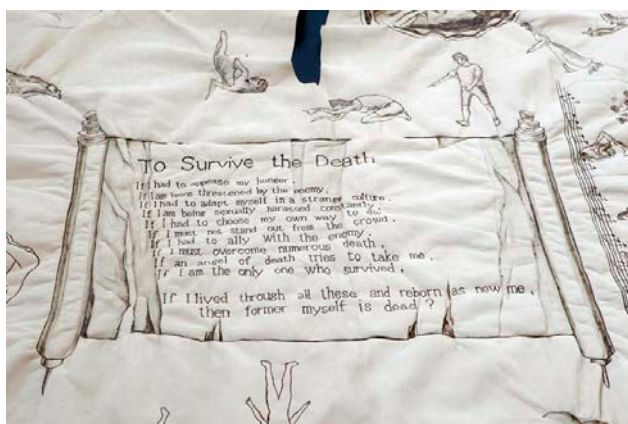 To Survive the Death
If I had to appease my
If I am being threatened by the enemy,
If I had to adapt myself in a strange culture,
If I am being sexually harassed constantly,
If I had to choose my own way to die
If I must not stand out from the crowd,
If I had to ally with the enemy,
If I must overcome numerous death,
If an angel of death tries to take me,
If I am the only one who survived,
If I lived through all these and reborn as new me,
then former myself is dead?